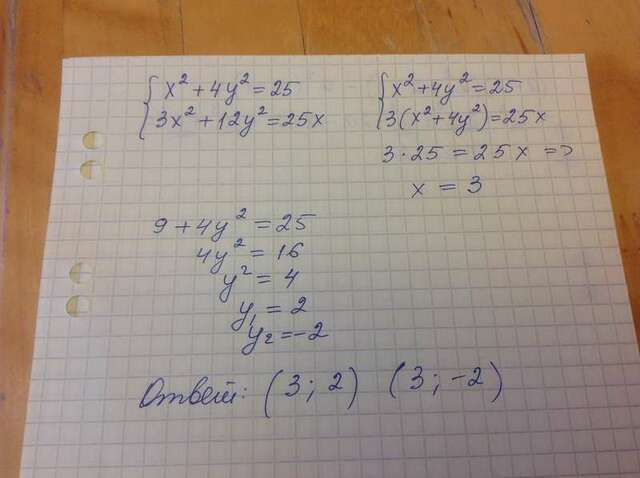 x² + 4y² = 25
3x² + 12y² = 25x
x² + 4y² = 25
3(x² + 4y²) = 25x
3 · 25 = 25x =>
x = 3
9 + 4y² = 25
4y² = 16
y² = 4
y₁ = 2
y₂ = -2
Ответ: (3; 2) (3; -2)